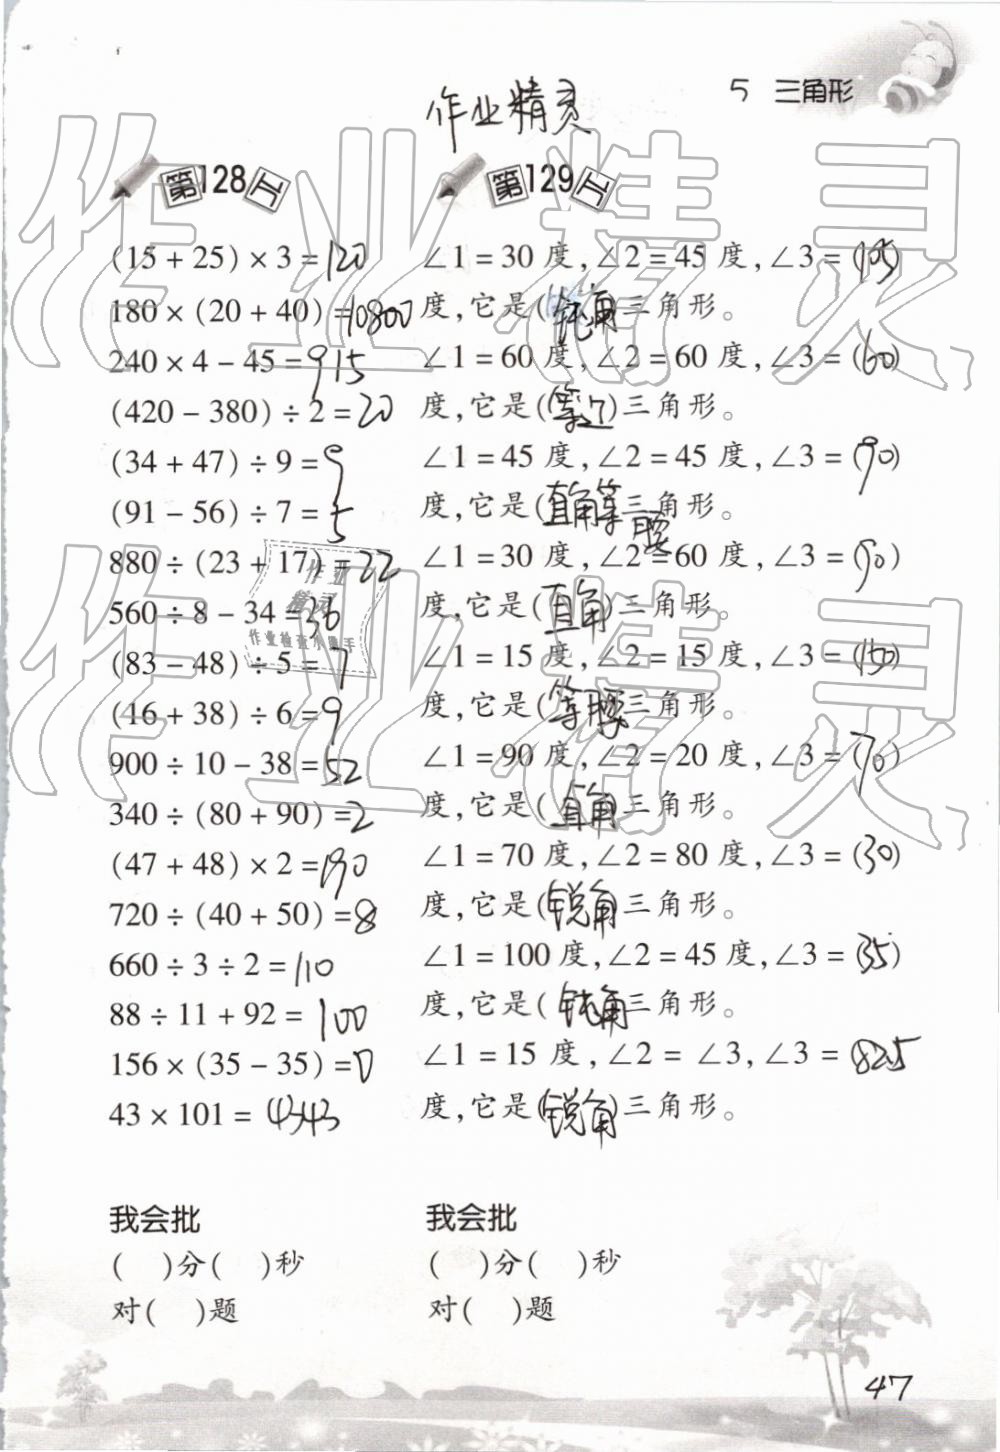 5 三角形
作业精灵
第128工
(15+25)×3=120
180×(20+40)=10800
240×4-45=915
(420-380)÷2=20
(34+47)÷9=9
(91-56)÷7=5
880÷(23+17)=22
560÷8-34=36
(83-48)÷5=7
(46+38)÷6=9
900÷10-38=52
340÷(80+90)=2
(47+48)×2=190
720÷(40+50)=8
660÷3÷2=110
88÷11+92=100
156×(35-35)=0
43×101=4343
我会批
( )分( )秒
对( )题
第129工
∠1=30度,∠2=45度,∠3=(105)
度,它是(钝角三角形。
∠1=60度,∠2=60度,∠3=(60)
度,它是(等边)三角形。
∠1=45度,∠2=45度,∠3=(90)
度,它是(直角等腰三角形。
∠1=30度,∠2=60度,∠3=(90)
度,它是(直角)三角形。
∠1=15度,∠2=15度,∠3=(150)
度,它是(等腰三角形。
∠1=90度,∠2=20度,∠3=(70)
度,它是(直角三角形。
∠1=70度,∠2=80度,∠3=(30)
度,它是(锐角三角形。
∠1=100度,∠2=45度,∠3=(35)
度,它是(钝角三角形。
∠1=15度,∠2=∠3,∠3=(82.5
度,它是(锐角)三角形。
我会批
( )分( )秒
对( )题
作业精灵
作业精灵
作业
精灵
作业检查小助手
47